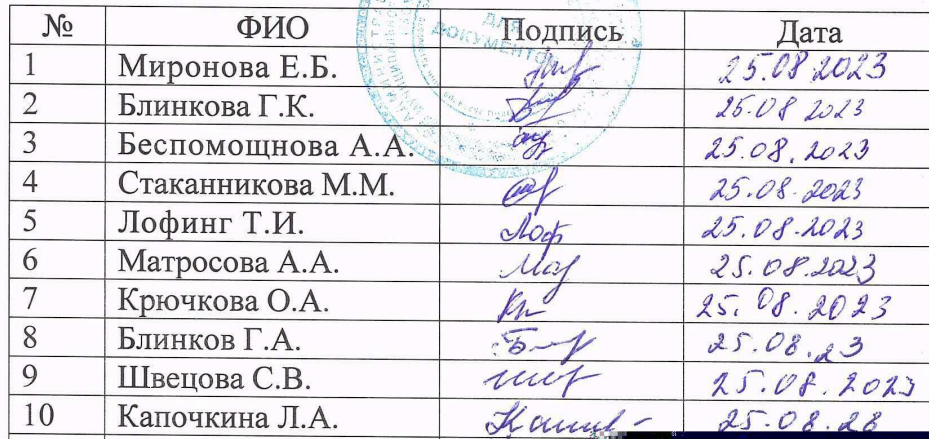 № ФИО Подпись Дата
ДЛЯ
ДОКУМЕНТОВ
1 Миронова Е.Б. 25.08 2023
2 Блинкова Г.К. 25.08 2023
3 Беспомощнова А.А. 25.08.2023
4 Стаканникова М.М. 25.08.2023
5 Лофинг Т.И. Лоф 25.08.2023
6 Матросова А.А. 25.08.2023
7 Крючкова О.А. 25.08.2023
8 Блинков Г.А. 25.08.23
9 Швецова С.В. 25.08.2023
10 Капочкина Л.А. 25.08.28